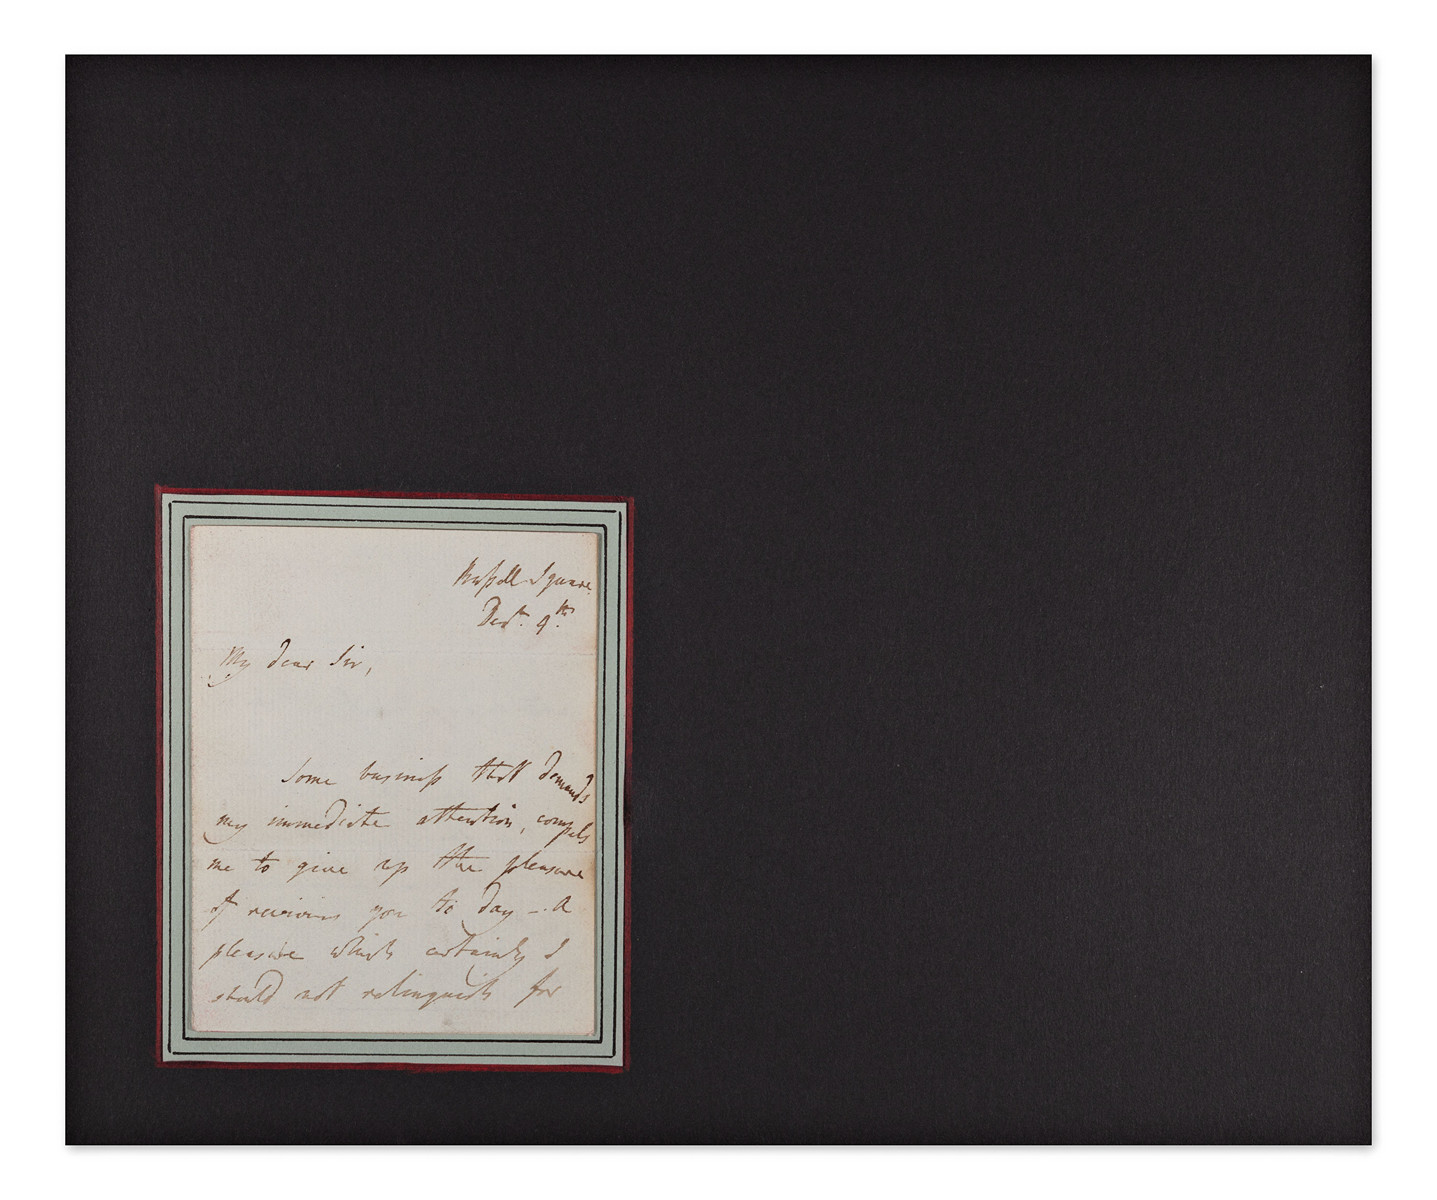 Russell Square
Decr. 9.th
My dear Sir,
Some business that demands
my immediate attention, compels
me to give up the pleasure
of receiving you to day – A
pleasure which certainly I
should not relinquish for